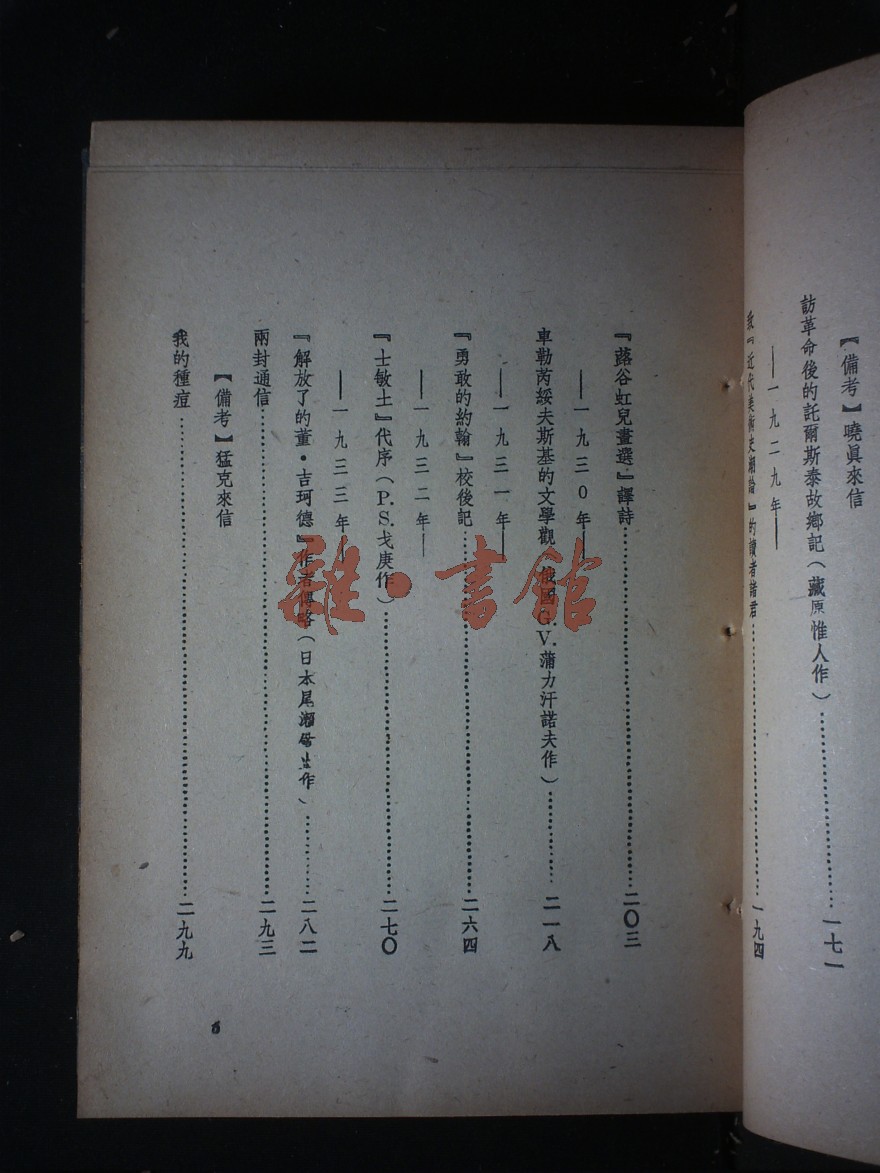 【備考】曉眞來信
訪革命後的託爾斯泰故鄉記（藏原惟人作）…………一七一
——一九二九年——
致『近代美術史潮論』的讀者諸君…………一九四
『蕗谷虹兒畫選』譯詩…………二〇三
——一九三〇年——
車勒芮綏夫斯基的文學觀 俄國G.V.蒲力汗諾夫作）…………二一八
——一九三一年——
『勇敢的約翰』校後記…………二六四
——一九三二年——
『士敏土』代序（P.S.戈庚作）…………二七〇
——一九三三年——
『解放了的董·吉珂德』作者傳略（日本尾瀨作）…………二八二
兩封通信…………二九三
【備考】猛克來信
我的種痘…………二九九
6
雜·書館